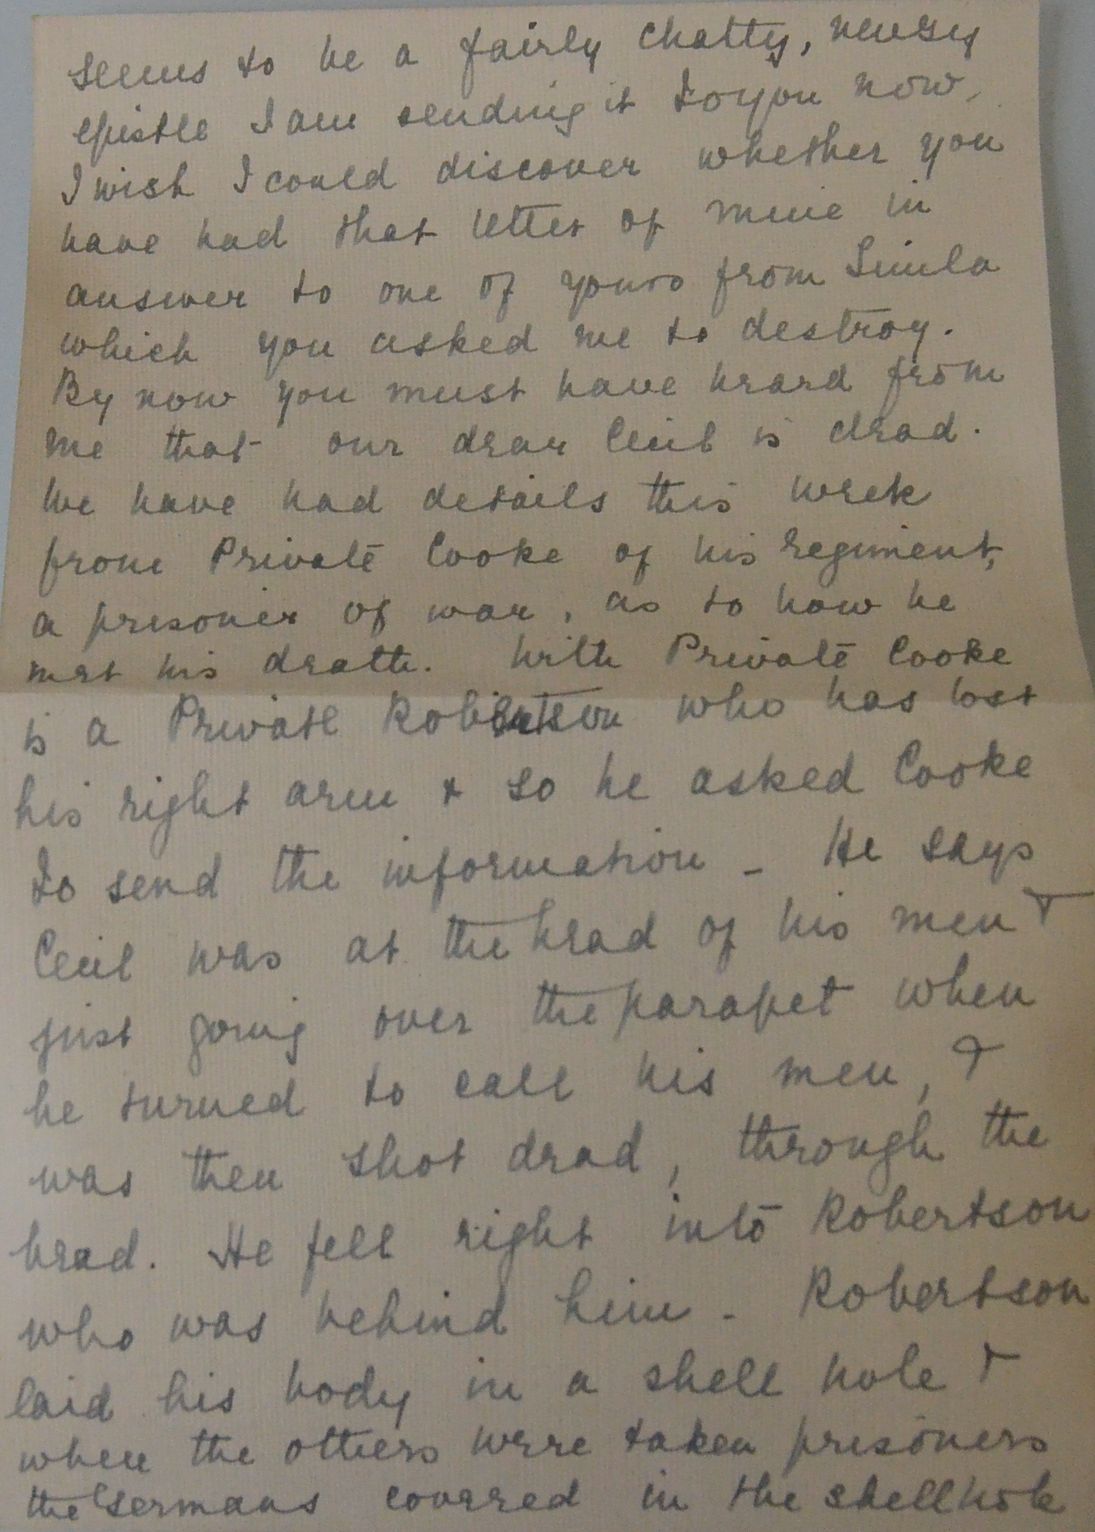 seems to be a fairly chatty, newsy
epistle I am sending it to you now,
I wish I could discover whether you
have had that letter of mine in
answer to one of yours from Simla
which you asked me to destroy.
By now you must have heard from
me that our dear Cecil is dead.
We have had details this week
from Private Cooke of his regiment,
a prisoner of war, as to how he
met his death. With Private Cooke
is a Private Robertson who has lost
his right arm & so he asked Cooke
to send the information - He says
Cecil was at the head of his men &
just going over the parapet when
he turned to call his men, &
was then shot dead, through the
head. He fell right into Robertson
who was behind him - Robertson
laid his body in a shell hole &
when the others were taken prisoners
the Germans covered in the shell hole